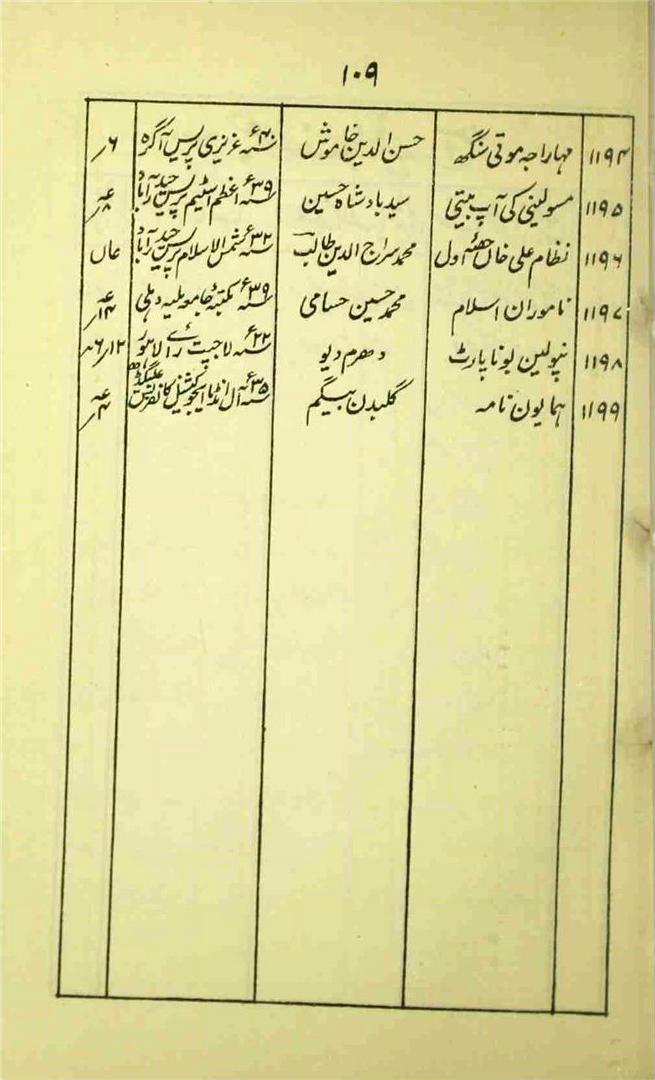 ۱۰۹
۱۱۹۴ مہاراجہ موتی سنگھ حسن الدین خاموش ۴۰ء عزیزی پریس آگرہ ۶؍
۱۱۹۵ مسولینی کی آپ بیتی سید بادشاہ حسین ۳۹ء اعظم اسٹیم پریس حیدرآباد
۱۱۹۶ نظام علی خاں حصۂ اول محمد سراج الدین طالب ۳۲ء شمس الاسلام پریس حیدرآباد
۱۱۹۷ ناموران اسلام محمد حسین حسامی ۳۹ء مکتبۂ جامعہ ملیہ دہلی
۱۱۹۸ نپولین بونا پارٹ دھرم دیو ۲۲ء لاجپت رائے لاہور
۱۱۹۹ ہمایون نامہ گلبدن بیگم ۳۵ء آل انڈیا ایجوکیشنل کانفرنس علیگڈھ